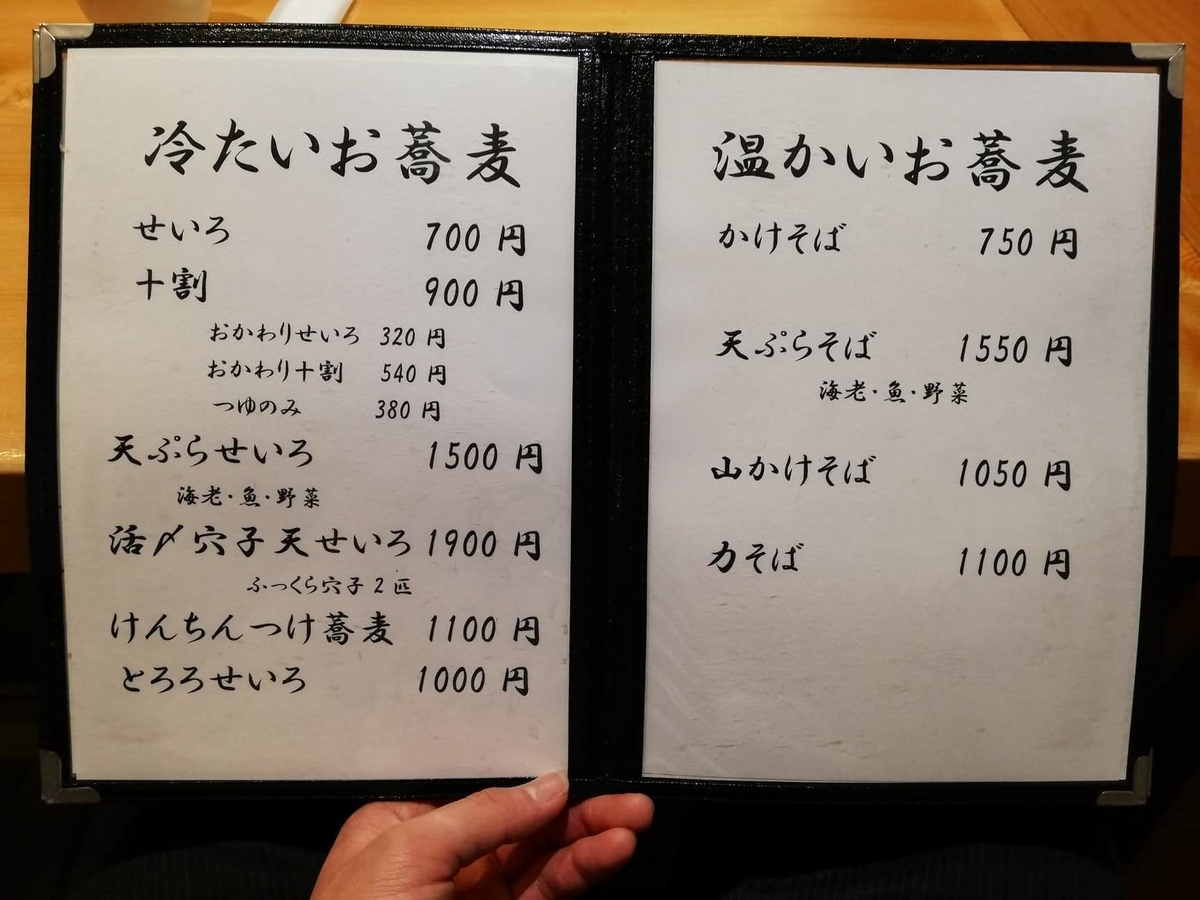 冷たいお蕎麦
せいろ 700 円
十割 900 円
おかわりせいろ 320 円
おかわり十割 540 円
つゆのみ 380 円
天ぷらせいろ 1500 円
海老・魚・野菜
活〆穴子天せいろ 1900 円
ふっくら穴子 2 匹
けんちんつけ蕎麦 1100 円
とろろせいろ 1000 円
温かいお蕎麦
かけそば 750 円
天ぷらそば 1550 円
海老・魚・野菜
山かけそば 1050 円
力そば 1100 円